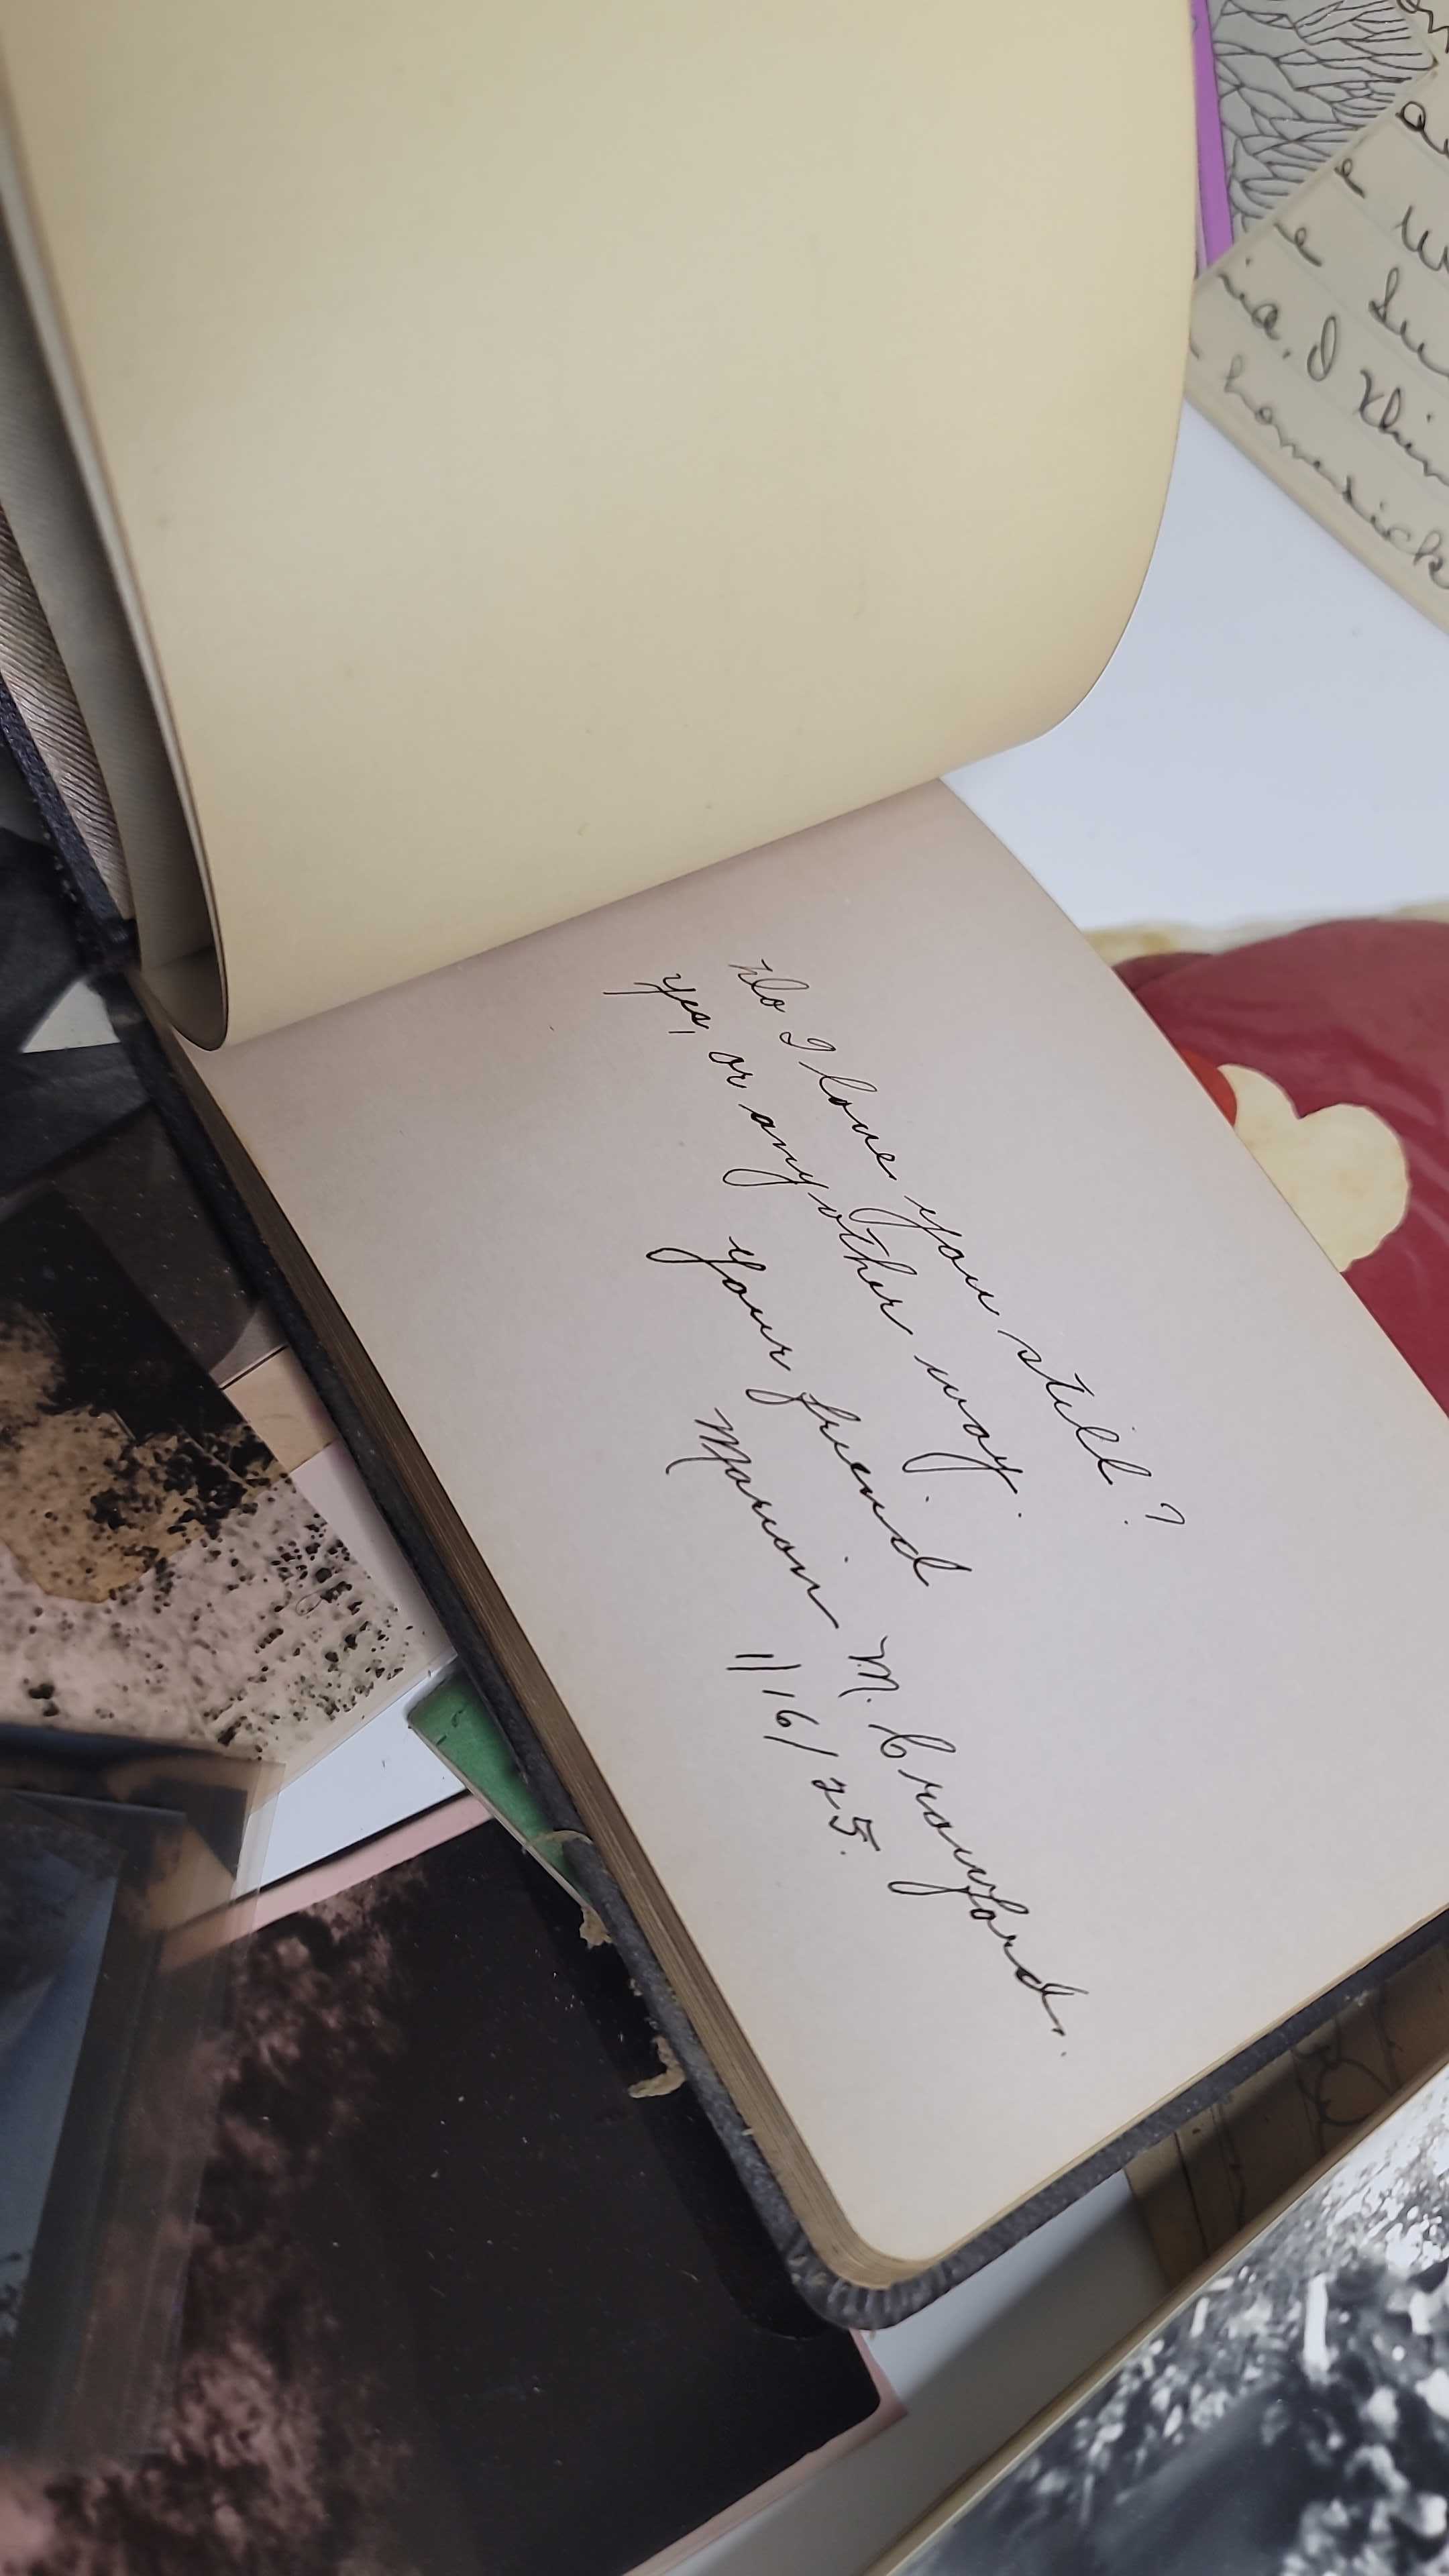 Do I love you still?
Yes, or any other way.
Your friend
Marion M. Crawford.
1/16/25.
I thin
homesick